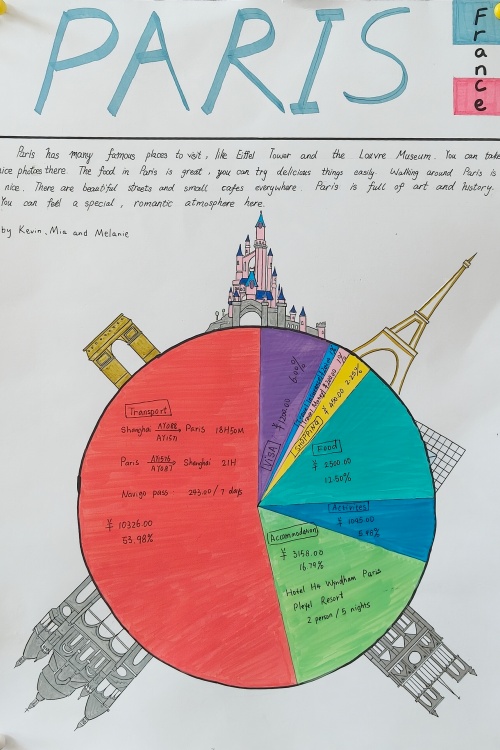 PARIS
France
Paris has many famous places to visit, like Eiffel Tower and the Louvre Museum. You can take
nice photoes there. The food in Paris is great, you can try delicious things easily. Walking around Paris is
nice. There are beautiful streets and small cafes everywhere. Paris is full of art and history.
You can feel a special, romantic atmosphere here.
by Kevin, Mia and Melanie
Transport
Shanghai Paris 18H50M
Paris Shanghai 21H
Navigo pass: 293.00/7 days
¥ 10326.00
53.98%
VISA
¥1200.00
SHOPPING
¥ 430.00 2.25%
Food
¥ 2500.00
12.50%
Activites
Accommodation
¥ 3158.00
16.79%
Hotel H4 Wyndham Paris
Pleyel Resort
2 person/5 nights